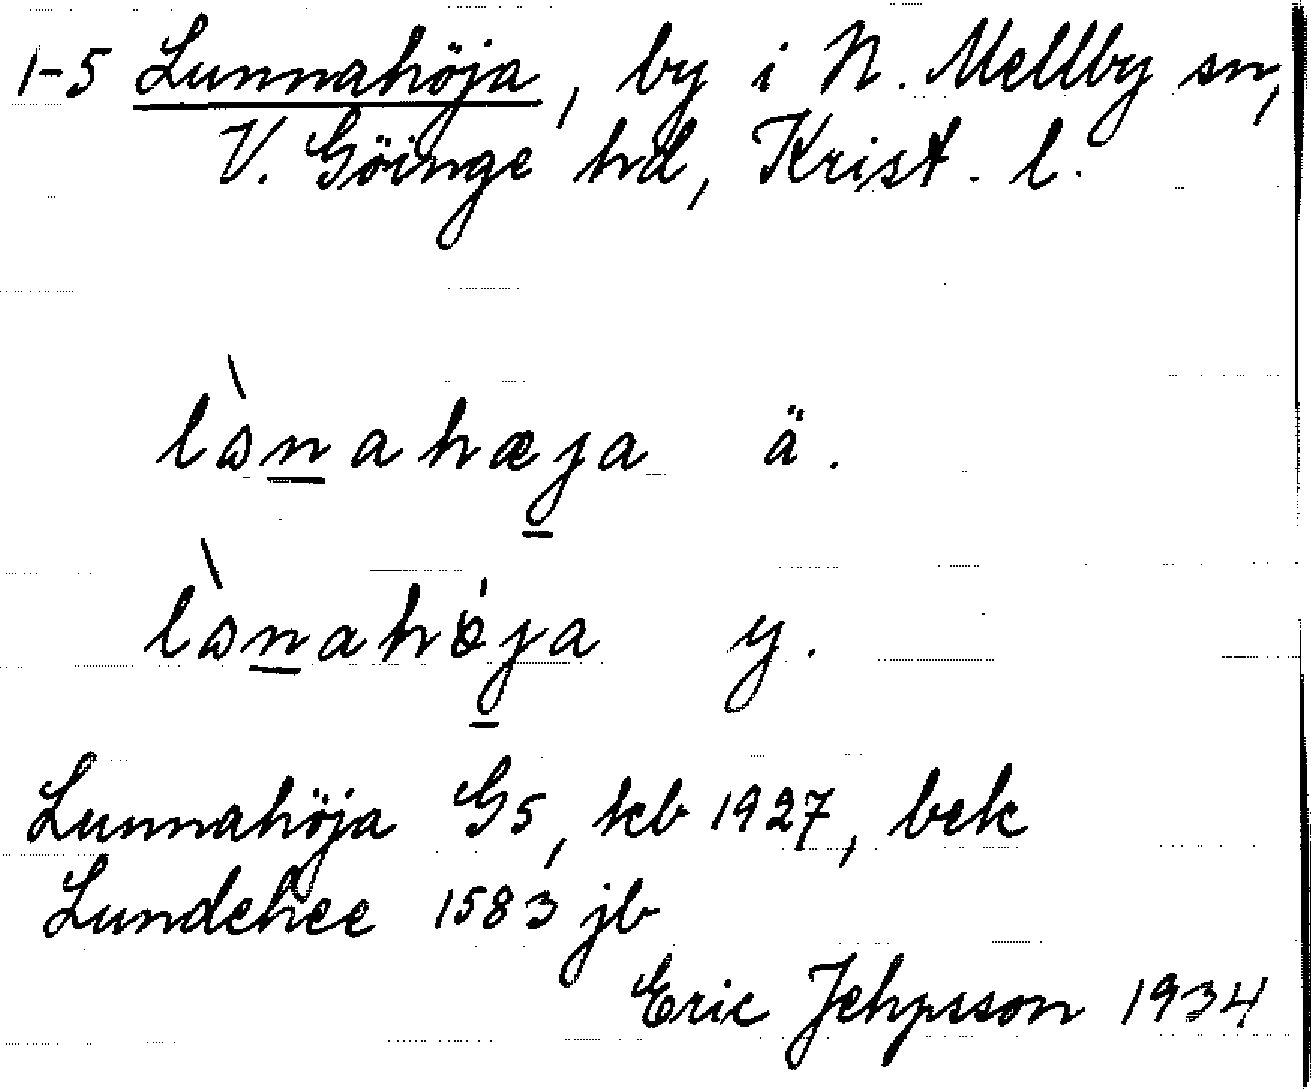 1-5 Lunnahöja, by i N. Mellby sn,
V. Göinge hd, Krist. l.
lònahæja ä.
lònahöja y.
Lunnahöja GS, kb 1927, bek
Lundehee 1583 jb
Eric Jehpsson 1934